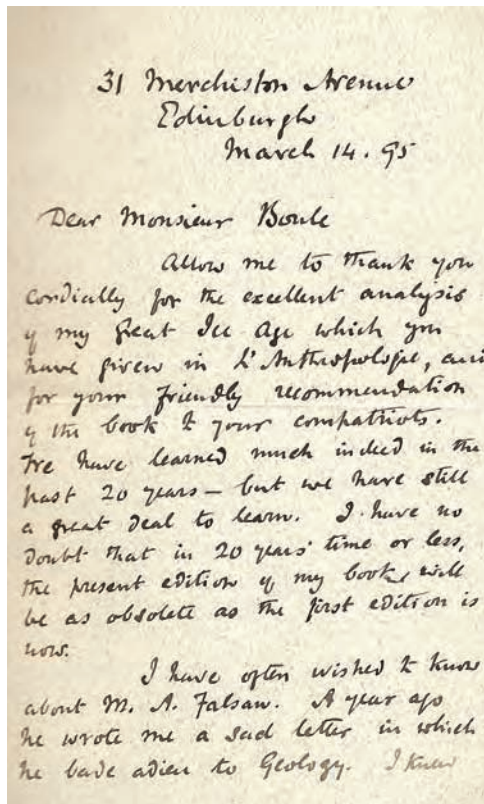 31 Merchiston Avenue
Edinburgh
March 14. 95
Dear Monsieur Boule
Allow me to thank you
cordially for the excellent analysis
of my Great Ice Age which you
have given in L'Anthropologie, and
for your friendly recommendation
of the book to your compatriots.
We have learned much indeed in the
past 20 years – but we have still
a great deal to learn. I have no
doubt that in 20 years' time or less,
the present edition of my book will
be as obsolete as the first edition is
now.
I have often wished to know
about M. A. Falsan. A year ago
he wrote me a sad letter in which
he bade adieu to Geology. I knew